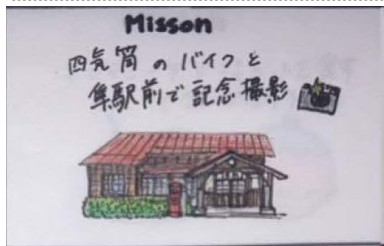 Misson
四気筒のバイクと
隼駅前で記念撮影